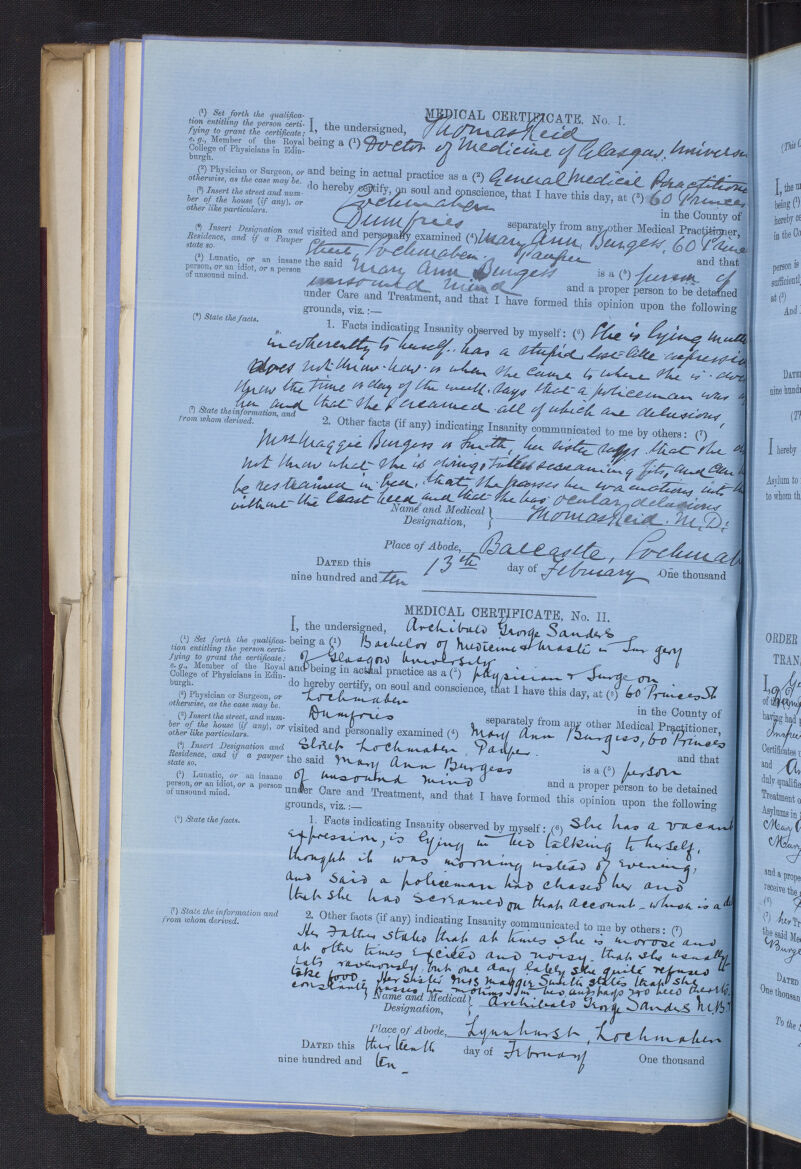 MEDICAL CERTIFICATE, No. I.
(¹) Set forth the qualifica-
tion entitling the person certi-
fying to grant the certificate;
e.g., Member of the Royal
College of Physicians in Edin-
burgh.
I, the undersigned, Thomas Reid
being a (¹) Doctor of Medicine of Glasgow
(²) Physician or Surgeon, or
otherwise, as the case may be.
and being in actual practice as a (²) General Medical Practitioner
(³) Insert the street and num-
ber of the house (if any), or
other like particulars.
do hereby certify, on soul and conscience, that I have this day, at (³) 60 Princes
Lochmaben in the County of
Dumfries separately from any other Medical Practitioner,
(⁴) Insert Designation and
Residence, and if a Pauper
state so.
visited and personally examined (⁴) Mary Ann Burgess, 60
Street, Lochmaben. Pauper and that
(⁵) Lunatic, or an insane
person, or an idiot, or a person
of unsound mind.
the said Mary Ann Burgess is a (⁵) person of
unsound mind and a proper person to be detained
under Care and Treatment, and that I have formed this opinion upon the following
grounds, viz.:—
(⁶) State the facts.
1. Facts indicating Insanity observed by myself: (⁶) She is lying
incoherently to herself. has a stupid
does not know how or when she came to where she is
know the time or day of the week. Says that a policeman was
her and that she screamed all of which are delusions,
(⁷) State the information, and
from whom derived.
2. Other facts (if any) indicating Insanity communicated to me by others: (⁷)
Mrs Maggie Burgess or Smith, her sister says that she
not know what she is doing, screaming fits, and
be restrained in bed. that she passes her evacuations into
without the least heed and that she has delusions
Name and Medical
Designation, Thomas Reid. M.D.
Place of Abode, Balcastle,
DATED this 13th day of February One thousand
nine hundred and ten
MEDICAL CERTIFICATE, No. II.
(¹) Set forth the qualifica-
tion entitling the person certi-
fying to grant the certificate;
e.g., Member of the Royal
College of Physicians in Edin-
burgh.
I, the undersigned, Archibald George Sanders
being a (¹) Bachelor of Medicine & Master in Surgery
of Glasgow University
(²) Physician or Surgeon, or
otherwise, as the case may be.
and being in actual practice as a (²) physician & Surgeon
(³) Insert the street, and num-
ber of the house (if any), or
other like particulars.
do hereby certify, on soul and conscience, that I have this day, at (³) 60 Princes St
Lochmaben in the County of
Dumfries separately from any other Medical Practitioner,
(⁴) Insert Designation and
Residence, and if a pauper
state so.
visited and personally examined (⁴) Mary Ann Burgess, 60 Princes
Street Lochmaben. Pauper and that
(⁵) Lunatic, or an insane
person, or an idiot, or a person
of unsound mind.
the said Mary Ann Burgess is a (⁵) person
of unsound mind and a proper person to be detained
under Care and Treatment, and that I have formed this opinion upon the following
grounds, viz.:—
(⁶) State the facts.
1. Facts indicating Insanity observed by myself: (⁶) She has a vacant
expression, is lying in bed talking to herself,
thought it was morning instead of evening,
and said a policeman had chased her and
that she had screamed on that account - which is a
(⁷) State the information and
from whom derived.
2. Other facts (if any) indicating Insanity communicated to me by others: (⁷)
Her Father states that at times she is morose and
at other times excited and noisy. that she usually
eats ravenously but one day lately she quite refused to
take food. Her Sister Mrs Maggie Smith states that she
constantly passes her motions in bed and pays no heed
Name and Medical
Designation, Archibald George Sanders M.B.
Place of Abode, Lynnhurst, Lochmaben
DATED this thirteenth day of February One thousand
nine hundred and ten
ORDER
TRAN